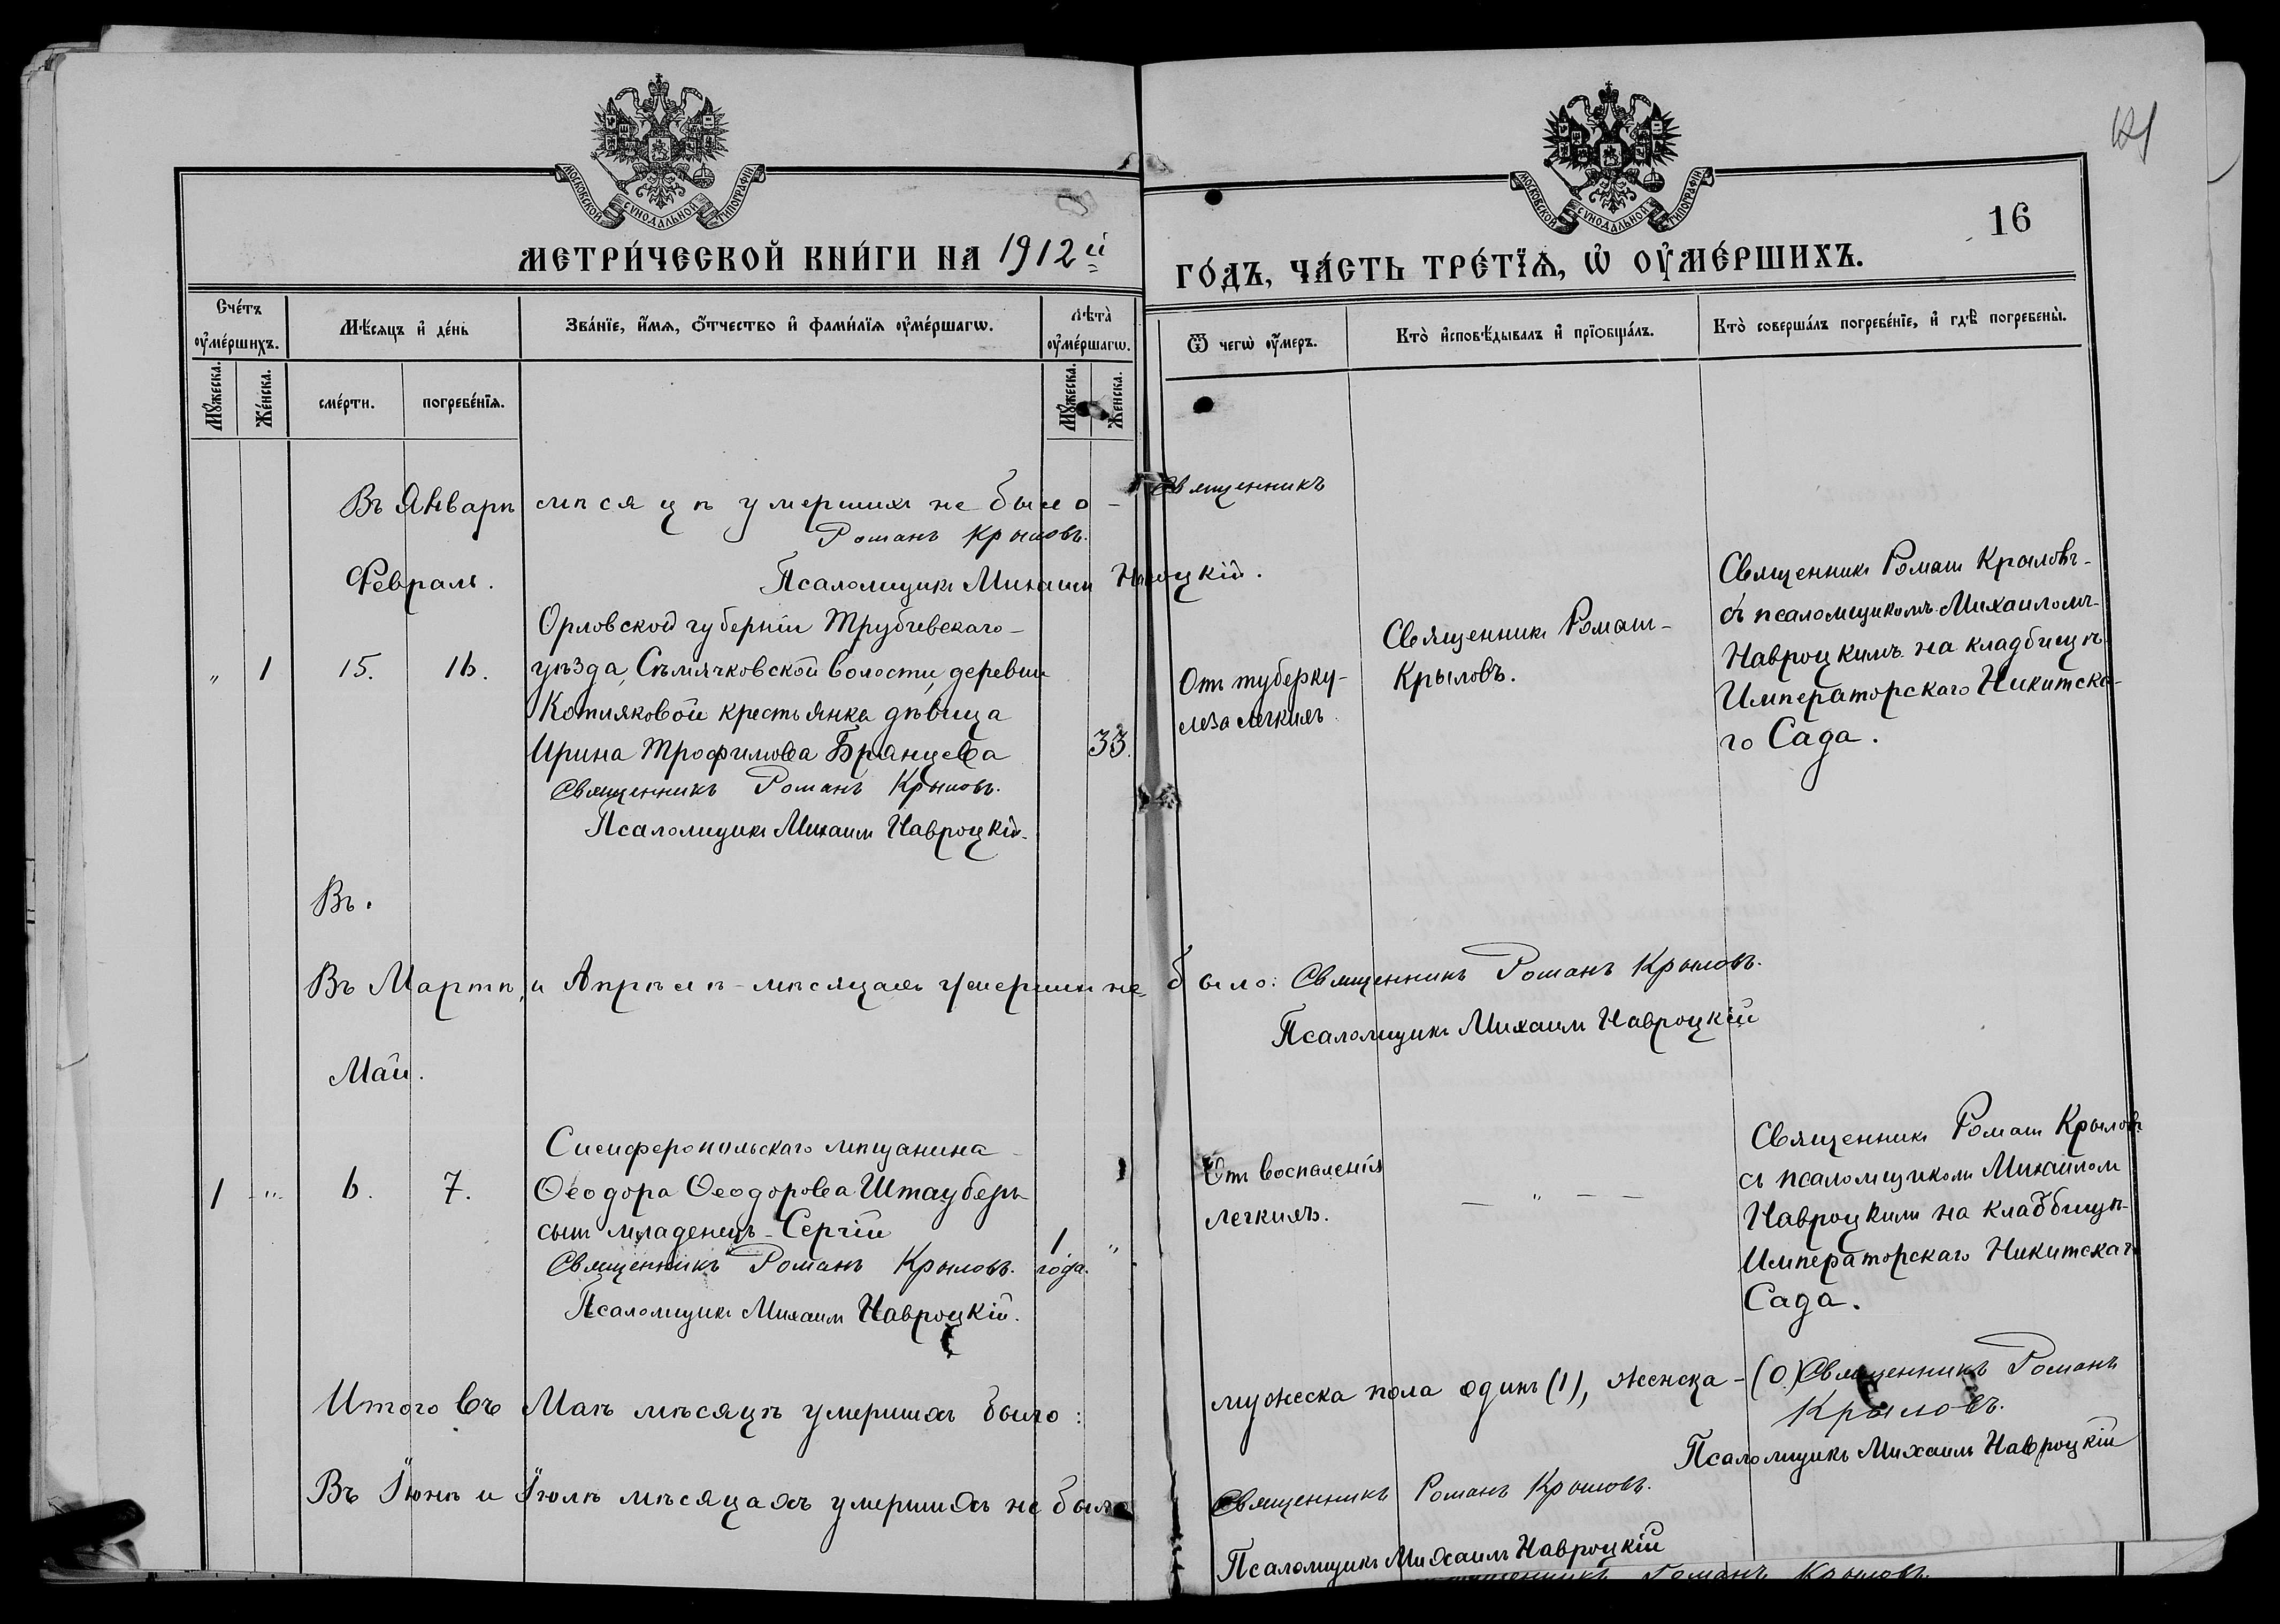 МОСКОВСКОЙ СѴНОДАЛЬНОЙ ТИПОГРАФІИ
МЕТРИ́ЧЕСКОЙ КНИ́ГИ НА 1912й
Сче́тъ ᲂу҆ме́ршихъ.
Мѣ́сяцъ и҆ де́нь
Зва́нїе, и҆́мя, ѻ҆́тчество и҆ фами́лїя ᲂу҆ме́ршагѡ.
лѣта̀ ᲂу҆ме́ршагѡ.
Мꙋ́жеска.
Же́нска.
сме́рти.
погребе́нїя.
Мꙋ́жеска.
Же́нска.
Въ Январѣ мѣсяцѣ умершихъ не было - Священникъ
Романъ Крыловъ.
Февраль.
Псаломщикъ Михаилъ Навроцкій.
Орловской губерніи Трубчевскаго
" 1 15. 16. уѣзда, Сѣмячковской волости, деревни
Котляковой крестьянка дѣвица
Ирина Трофимова Бранцева 33.
Священникъ Романъ Крыловъ.
Псаломщикъ Михаилъ Навроцкій.
Въ.
Въ Мартѣ, и Апрѣлѣ - мѣсяцахъ умершихъ не было: Священникъ Романъ Крыловъ.
Псаломщикъ Михаилъ Навроцкій
Май.
Симферопольскаго мѣщанина
1 " 6. 7. Ѳеодора Ѳеодорова Штауберъ
сынъ младенецъ - Сергій 1 "
Священникъ Романъ Крыловъ. года.
Псаломщикъ Михаилъ Навроцкій.
Итого въ Маѣ мѣсяцѣ умершихъ было:
Въ Іюнѣ и Іюлѣ мѣсяцахъ умершихъ не было
МОСКОВСКОЙ СѴНОДАЛЬНОЙ ТИПОГРАФІИ
16
ГО́ДЪ, ЧА́СТЬ ТРЕ́ТЇѦ, Ѡ҆ ОУ҆МЕ́РШИХЪ.
Ѿ чегѡ̀ ᲂу҆́меръ.
Кто̀ и҆сповѣ́дывалъ и҆ прїѻбща́лъ.
Кто̀ соверша́лъ погребе́нїе, и҆ гдѣ̀ погребены̀.
Отъ туберку-
леза легкихъ
Священникъ Романъ
Крыловъ.
Священникъ Романъ Крыловъ
съ псаломщикомъ Михаиломъ
Навроцкимъ на кладбищѣ
Императорскаго Никитска-
го Сада.
Отъ воспаленія
легкихъ.
— " — —
Священникъ Романъ Крыловъ
съ псаломщикомъ Михаиломъ
Навроцкимъ на кладбищѣ
Императорскаго Никитскаго
Сада.
мужеска пола одинъ (1), женска - (0) Священникъ Романъ
Крыловъ.
Псаломщикъ Михаилъ Навроцкій
Священникъ Романъ Крыловъ.
Псаломщикъ Михаилъ Навроцкій
Священникъ Романъ Крыловъ